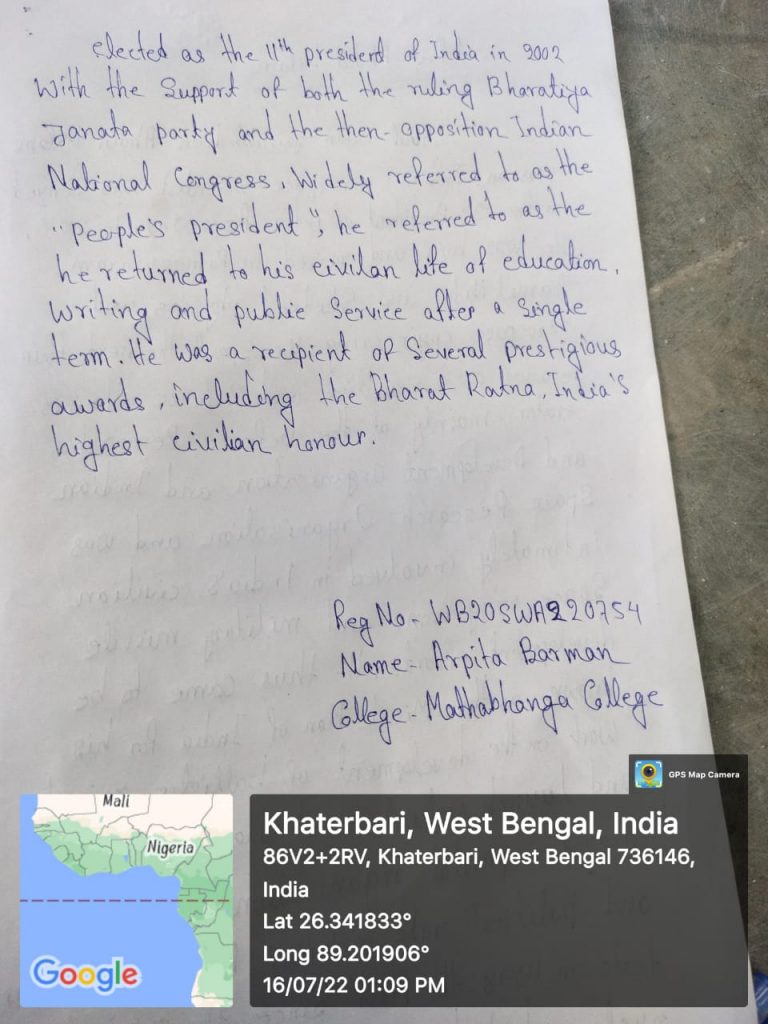 elected as the 11th president of India in 2002
With the Support of both the ruling Bharatiya
Janata party and the then-opposition Indian
National Congress, Widely referred to as the
"People's president", he referred to as the
he returned to his civilan life of education,
writing and public Service after a single
term. He was a recipient of Several prestigious
awards, including the Bharat Ratna, India's
highest civilian honour.
Reg No- WB20SWA220754
Name- Arpita Barman
College- Mathabhanga College
GPS Map Camera
Mali
Nigeria
Google
Khaterbari, West Bengal, India
86V2+2RV, Khaterbari, West Bengal 736146,
India
Lat 26.341833°
Long 89.201906°
16/07/22 01:09 PM